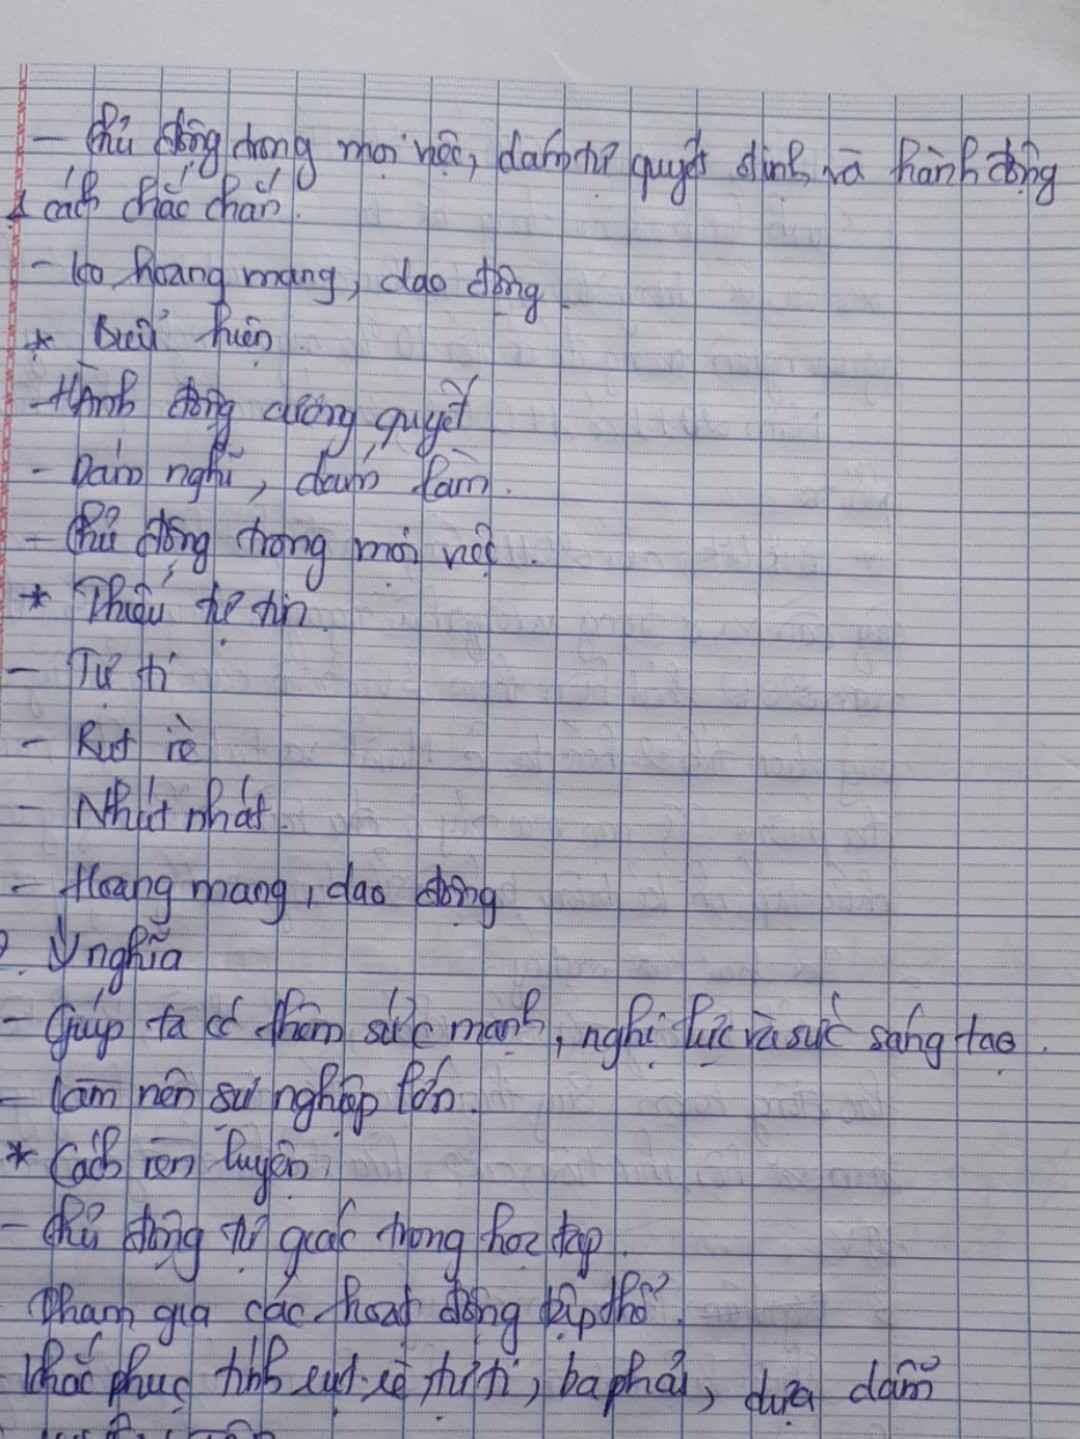 - Chủ động trong mọi việc, dám tự quyết định và hành động
1 cách chắc chắn.
- Ko hoang mang, dao động
* Biểu hiện
- Hành động cương quyết
- Dám nghĩ, dám làm.
- Chủ động trong mọi việc.
* Thiếu tự tin
- Tự ti
- Rụt rè
- Nhút nhát
- Hoang mang, dao động
Ý nghĩa
- Giúp ta có thêm sức mạnh, nghị lực và sức sáng tạo.
- Làm nên sự nghiệp lớn.
* Cách rèn luyện
- Chủ động tự giác trong học tập.
Tham gia các hoạt động tập thể.
Khắc phục tính rụt rè, tự ti, ba phải, dựa dẫm